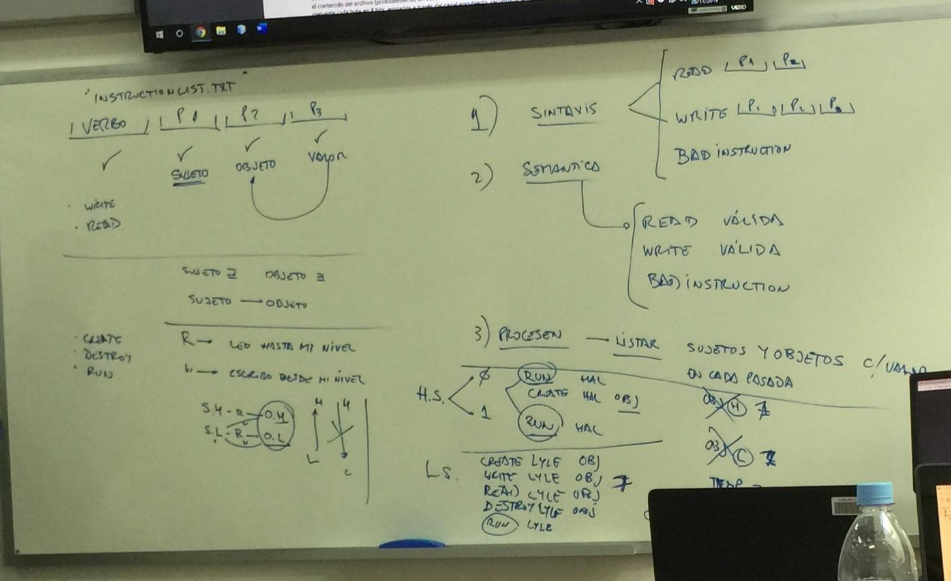 "INSTRUCTIONLIST.TXT"
VERBO P1 P2 P3
SUJETO OBJETO VALOR
· WRITE
· READ
SUJETO ∃ OBJETO ∃
SUJETO → OBJETO
· CREATE
· DESTROY
· RUN
R → LEO HASTA MI NIVEL
W → ESCRIBO DESDE MI NIVEL
S.H - R - O.H
S.L - R - O.L
H H
L L
1) SINTAXIS
READ P1 P2
WRITE P1 P2 P3
BAD INSTRUCTION
2) SEMANTICA
READ VÁLIDA
WRITE VÁLIDA
BAD INSTRUCTION
3) PROCESEN → LISTAR SUJETOS Y OBJETOS C/VALOR
EN CADA PASADA
H.S. 0 RUN HAL
CREATE HAL OBJ
1 RUN HAL
OBJ H
OBJ
LS. CREATE LYLE OBJ
WRITE LYLE OBJ 7
READ LYLE OBJ
DESTROY LYLE OBJ
RUN LYLE